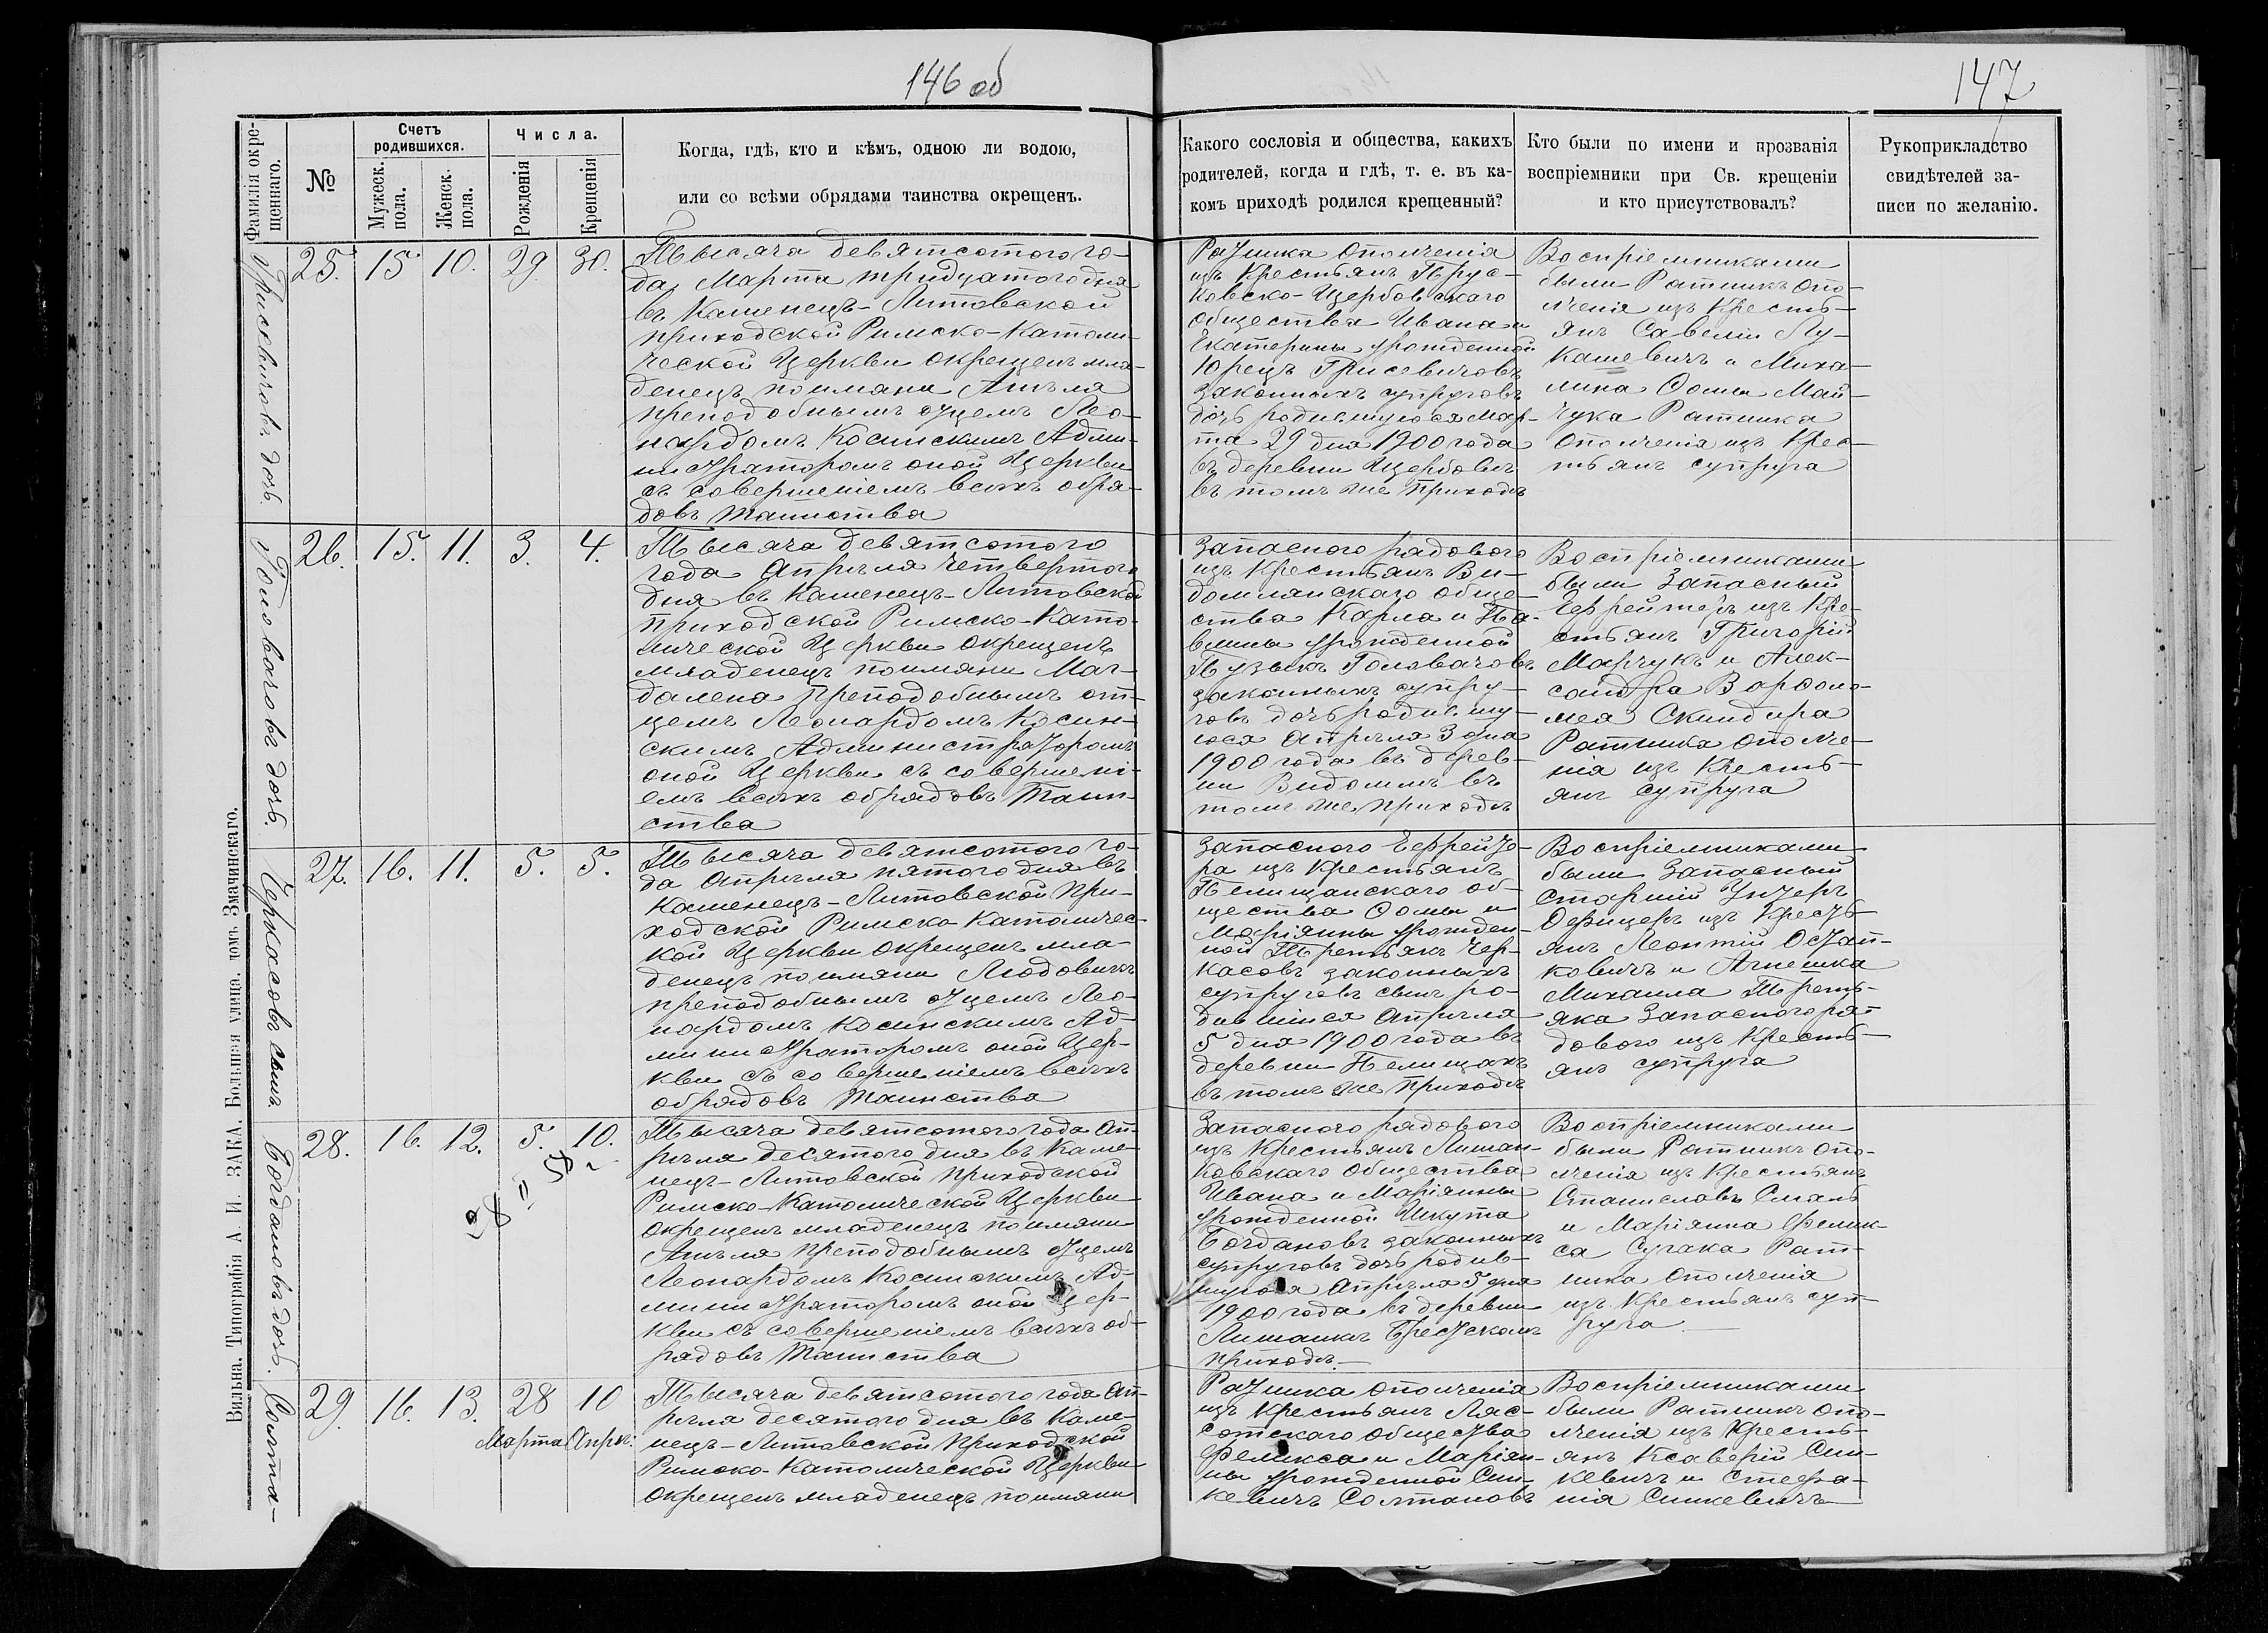 146 об
147
Фамилія окре-
щеннаго.
№
Счетъ
родившихся.
Мужеск.
пола.
Женск.
пола.
Числа.
Рожденія
Крещенія
Когда, гдѣ, кто и кѣмъ, одною ли водою,
или со всѣми обрядами таинства окрещенъ.
Какого сословія и общества, какихъ
родителей, когда и гдѣ, т. е. въ ка-
комъ приходѣ родился крещенный?
Кто были по имени и прозванія
воспріемники при Св. крещеніи
и кто присутствовалъ?
Рукоприкладство
свидѣтелей за-
писи по желанію.
Грисевичовъ дочь.
25. 15 10. 29 30.
Тысяча девятсотого го-
да, Марта тридцатого дня
въ Каменецъ-Литовской
приходской Римско-Католи-
ческой Церкви окрещенъ мла-
денецъ поимяни Анѣля
преподобнымъ отцемъ Лео-
нардомъ Косинскимъ Адми-
нистраторомъ оной Церкви
съ совершеніемъ всѣхъ обря-
довъ таинства
Ратника ополченія
изъ Крестьянъ Прус-
ковско-Щербовскаго
общества Ивана и
Екатерины урожденной
Юрецъ Грисевичовъ
законныхъ супруговъ
дочь родившуюся Мар-
та 29 дня 1900 года
въ деревни Щербовъ
въ томъ же приходѣ
Воспріемниками
были Ратникъ опо-
лченія изъ Кресть-
янъ Савелій Лу-
кашевичъ и Миха-
лина Фомы Май-
чука Ратника
ополченія изъ Крес-
тьянъ супруга
Головачовъ дочь.
26. 15. 11. 3. 4.
Тысяча девятсотого
года Апрѣля четвертого
дня въ Каменецъ-Литовской
приходской Римско-Като-
лической Церкви окрещенъ
младенецъ поимяни Маг-
далена преподобнымъ от-
цемъ Леонардомъ Косин-
скимъ Администраторомъ
оной Церкви съ совершені-
емъ всѣхъ обрядовъ Таин-
ства
Запасного рядового
изъ Крестьянъ Ви-
домлянскаго обще-
ства Карла и Па-
влины урожденной
Пузыкъ Головачовъ
законныхъ супру-
говъ дочь родившу-
юся Апрѣля 3 дня
1900 года въ дерев-
ни Видомлѣ въ
томъ же приходѣ
Воспріемниками
были Запасный
Ефрейторъ изъ Кре-
стьянъ Григорій
Марчукъ и Алек-
сандра Варфоло-
мея Скиндира
Ратника ополче-
нія изъ Кресть-
янъ супруга
Черкасовъ сынъ
27. 16. 11. 5. 5.
Тысяча девятсотого го-
да Апрѣля пятого дня въ
Каменецъ-Литовской При-
ходской Римско-Католичес-
кой Церкви окрещенъ мла-
денецъ поимяни Людовикъ
преподобнымъ отцемъ Лео-
нардомъ Косинскимъ Ад-
министраторомъ оной Цер-
кви съ совершеніемъ всѣхъ
обрядовъ Таинства
Запасного Ефрейто-
ра изъ Крестьянъ
Пелищанскаго об-
щества Фомы и
Маріянны урожден-
ной Третьякъ Чер-
касовъ законныхъ
супруговъ сынъ ро-
дившійся Апрѣля
5 дня 1900 года въ
деревни Пелищахъ
въ томъ же приходѣ
Воспріемниками
были Запасный
старшій Унтеръ
Офицеръ изъ Кресть-
янъ Леонтій Остап-
ковичъ и Агнешка
Михаила Треть-
яка Запасного ря-
дового изъ Кресть-
янъ супруга
Богдановъ дочь.
28. 16. 12. 5. 10.
Тысяча девятсотого года Ап-
рѣля десятого дня въ Каме-
нецъ-Литовской Приходской
Римско-Католической Церкви
окрещенъ младенецъ поимяни
Анѣля преподобнымъ отцемъ
Леонардомъ Косинскимъ Ад-
министраторомъ оной Цер-
кви съ совершеніемъ всѣхъ об-
рядовъ Таинства
Запасного рядового
изъ Крестьянъ Лишан-
ковскаго общества
Ивана и Маріянны
урожденной Шкута
Богдановъ законныхъ
супруговъ дочь родив-
шуюся Апрѣля 5 дня
1900 года въ деревни
Лишанкъ Брестскомъ
приходѣ.
Воспріемниками
были Ратникъ опо-
лченія изъ Крестьянъ
Станиславъ Смаль
и Маріянна Фелик-
са Сугака Рат-
ника ополченія
изъ Крестьянъ суп-
руга
Солта-
29. 16. 13. 28 10
Марта Апрѣ:
Тысяча девятсотого года Ап-
рѣля десятого дня въ Каме-
нецъ-Литовской Приходской
Римско-Католической Церкви
окрещенъ младенецъ поимяни
Ратника ополченія
изъ Крестьянъ Ляс-
сотскаго общества
Феликса и Маріян-
ны урожденной Син-
кевичъ Солтановъ
Воспріемниками
были Ратникъ опо-
лченія изъ Кресть-
янъ Ксаверій Син-
кевичъ и Стефа-
нія Синкевичъ
Вильна. Типографія А. И. ЗАКА. Большая улица, домъ Змачинскаго.